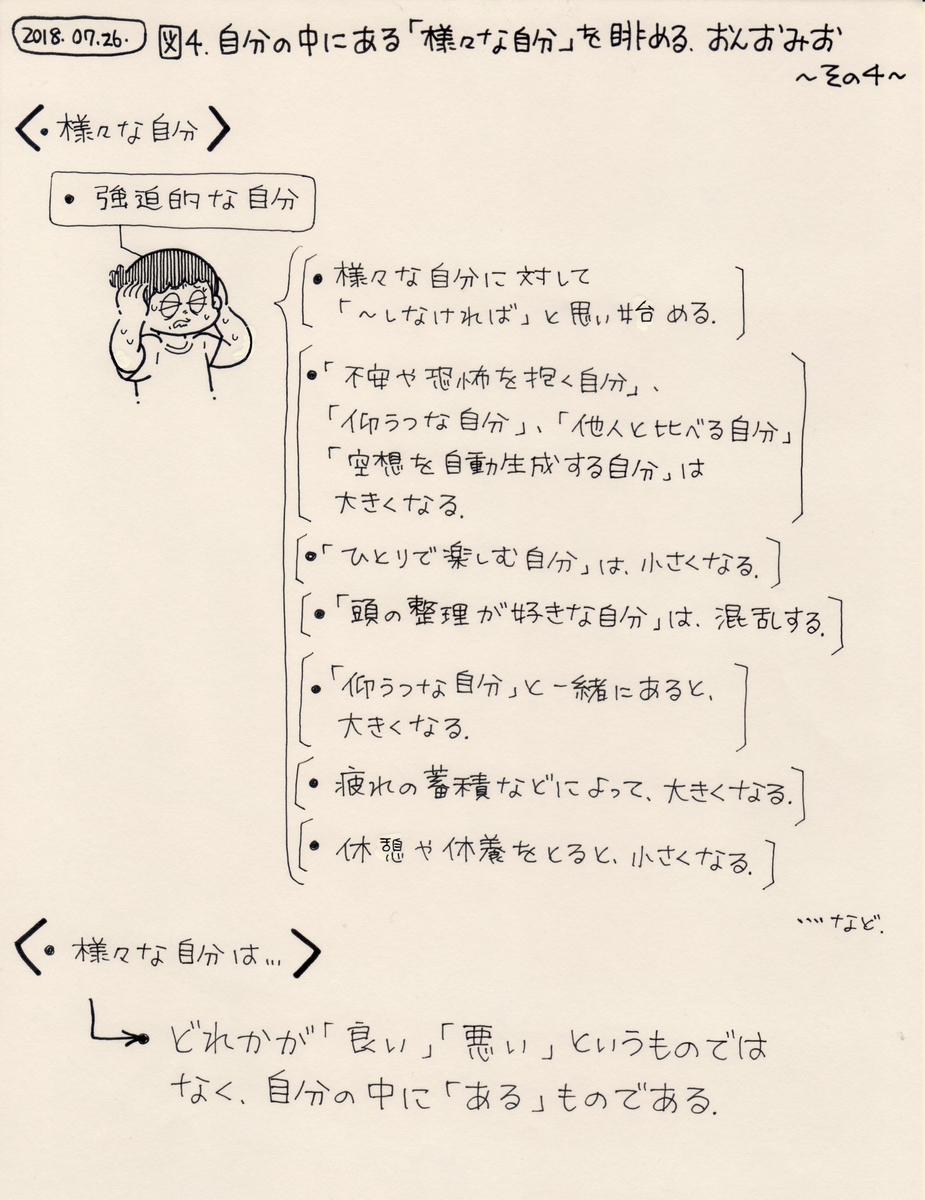 2018.07.26. 図4.自分の中にある「様々な自分」を眺める.おんおみお
～その4～
〈・様々な自分〉
・強迫的な自分
・様々な自分に対して
「～しなければ」と思い始める.
・「不安や恐怖を抱く自分」、
「仰うつな自分」、「他人と比べる自分」
「空想を自動生成する自分」は
大きくなる.
・「ひとりで楽しむ自分」は、小さくなる.
・「頭の整理が好きな自分」は、混乱する.
・「仰うつな自分」と一緒にあると、
大きくなる.
・疲れの蓄積などによって、大きくなる.
・休憩や休養をとると、小さくなる.
....など.
〈・様々な自分は...〉
どれかが「良い」「悪い」というものでは
なく、自分の中に「ある」ものである.